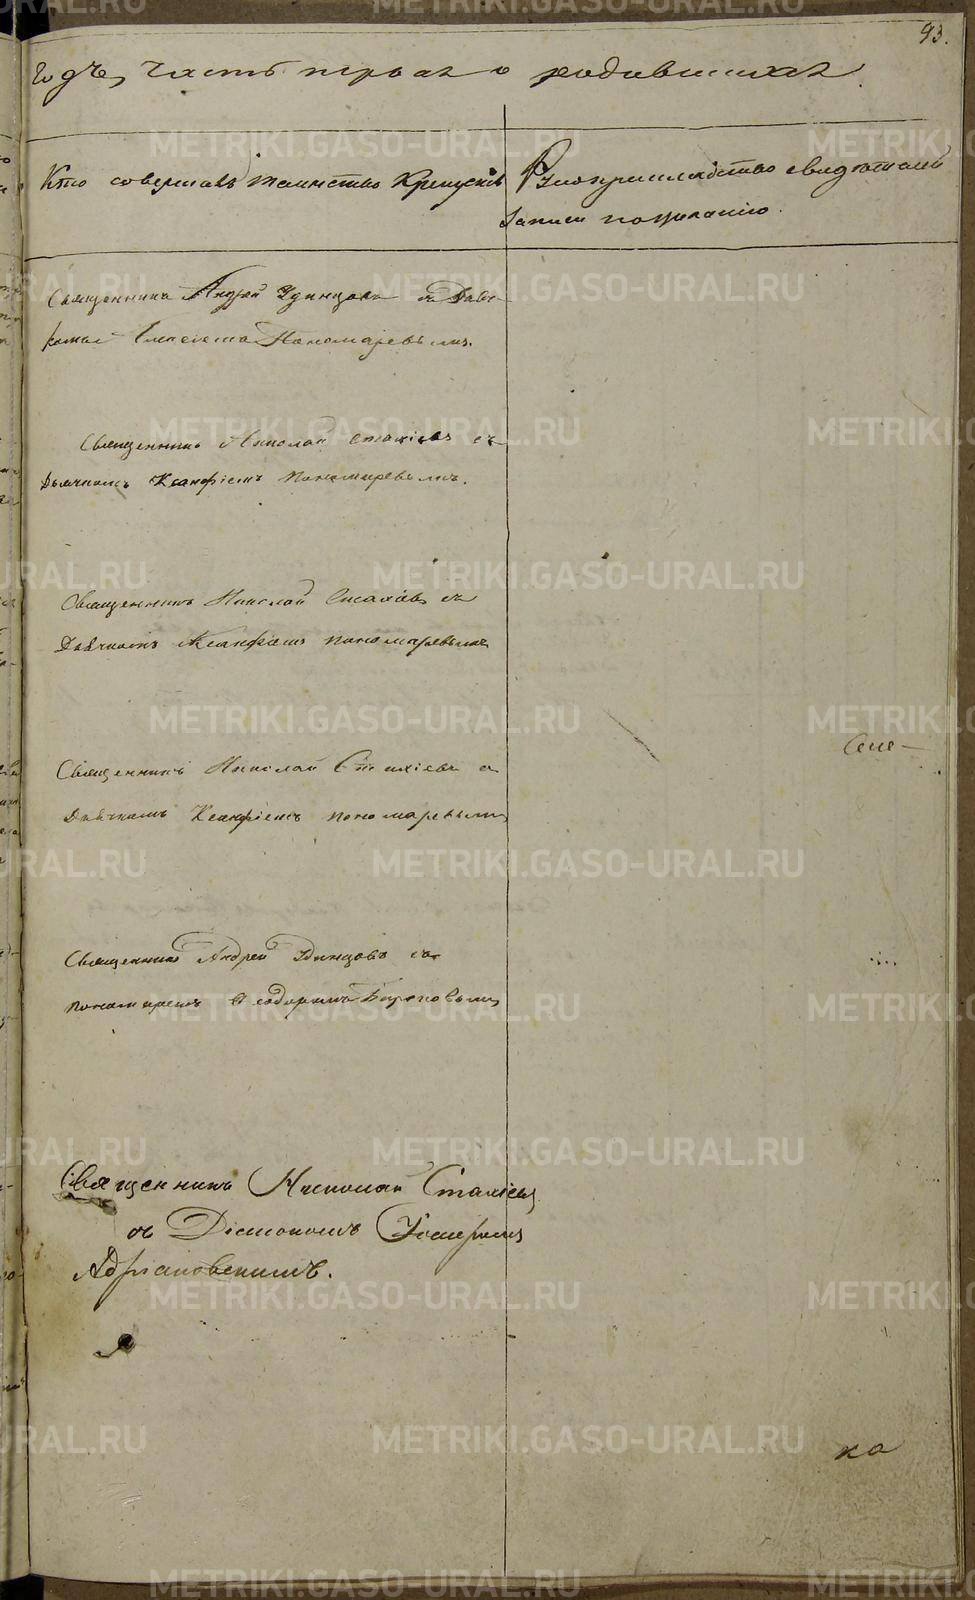 93.
Годъ, часть первая о родившихся
Кто совершалъ таинство Крещенія
Рукоприкладство свидѣтелей
записи по желанію.
Священникъ Андрей Удинцовъ съ
Пономаревымъ.
Священникъ Николай Стахіевъ съ
Дьячкомъ Ксанфіемъ Пономаревымъ.
Священникъ Николай Стахіевъ съ
Дьячкомъ Ксанфіемъ Пономаревымъ
Священникъ Николай Стахіевъ съ
Дьячкомъ Ксанфіемъ Пономаревымъ
Священникъ Андрей Удинцовъ съ
пономаремъ Ѳеодоромъ
Священникъ Николай Стахіевъ
съ Діакономъ
Адріановскимъ.
ка
METRIKI.GASO-URAL.RU